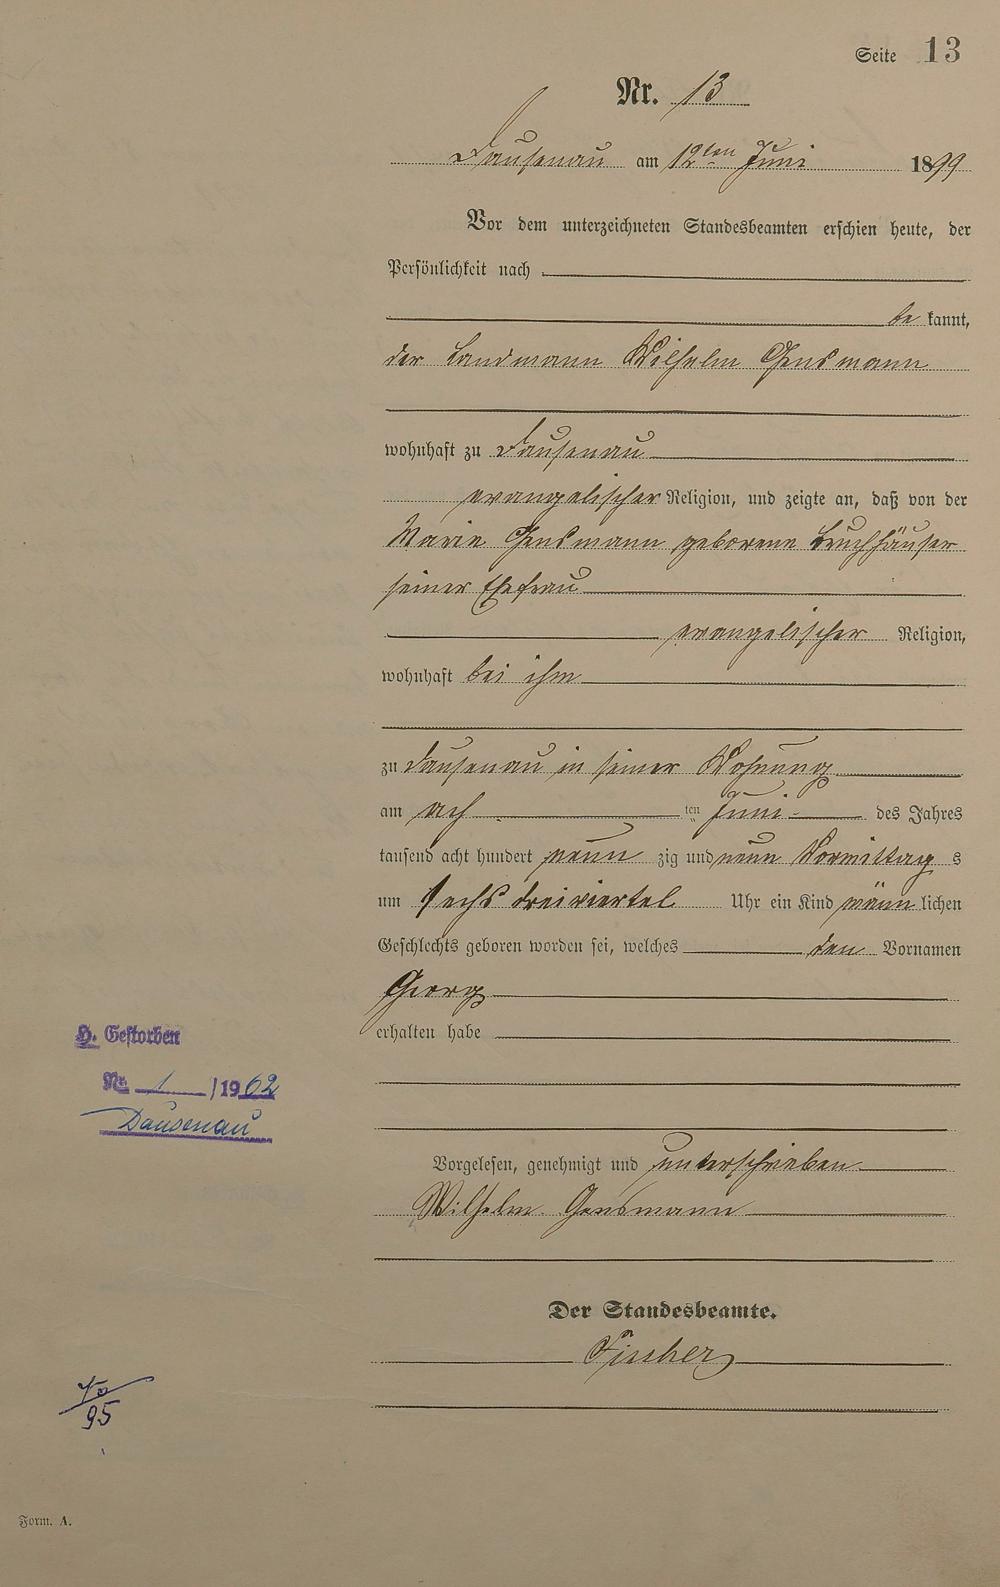 Seite 13
Nr. 13
Dausenau am 12ten Juni 1899
Vor dem unterzeichneten Standesbeamten erschien heute, der
Persönlichkeit nach
be kannt,
der Landmann Wilhelm Gensmann
wohnhaft zu Dausenau
evangelischer Religion, und zeigte an, daß von der
Marie Gensmann geborene Bruchhäuser
seiner Ehefrau
evangelischer Religion,
wohnhaft bei ihm
zu Dausenau in seiner Wohnung
am ach ten Juni des Jahres
tausend acht hundert neun zig und neun Vormittag s
um sechs dreiviertel Uhr ein Kind männ lichen
Geschlechts geboren worden sei, welches den Vornamen
Georg
erhalten habe
H. Gestorben
Nr. 1 /1962
Dausenau
Vorgelesen, genehmigt und unterschrieben
Wilhelm Gensmann
Der Standesbeamte.
95
Form. A.